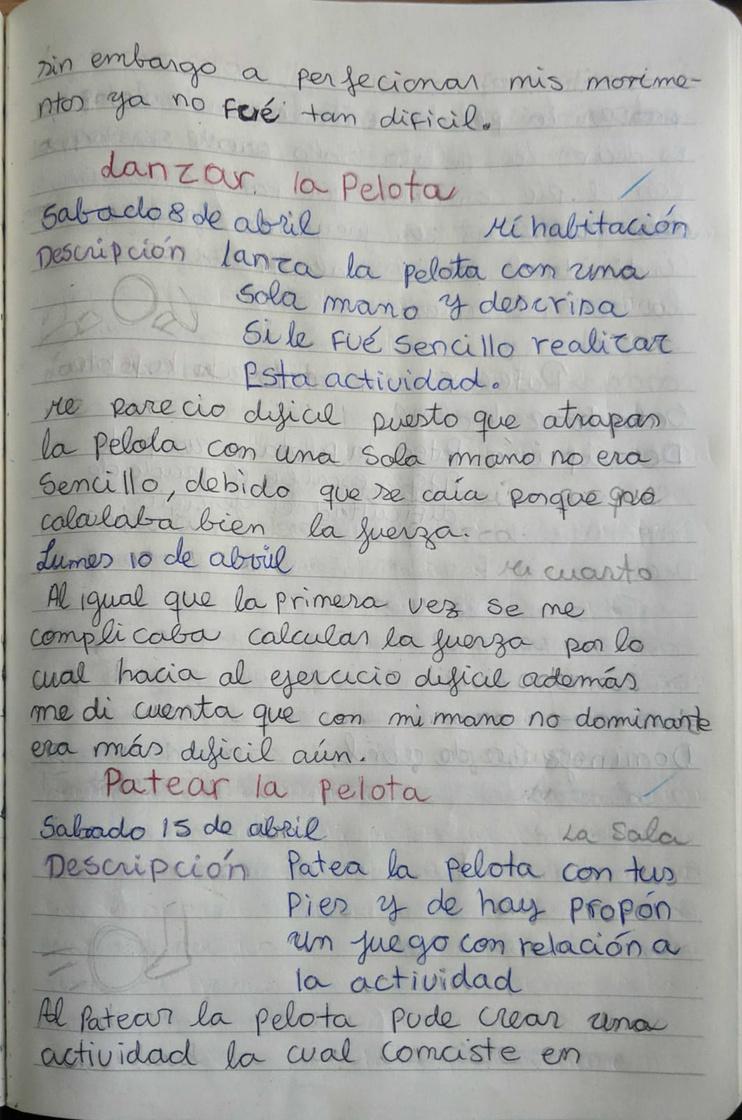 sin embargo a perfecionar mis movime-
ntos ya no fué tan dificil.
Lanzar la Pelota
Sabado 8 de abril Mi habitación
Descripción lanza la pelota con una
sola mano y descriva
Si le fué sencillo realizar
Esta actividad.
Me parecio dificil puesto que atrapar
la pelota con una sola mano no era
sencillo, debido que se caía porque no
calculaba bien la fuerza.
Lunes 10 de abril Mi cuarto
Al igual que la primera vez se me
complicaba calcular la fuerza por lo
cual hacia al ejercicio dificil además
me di cuenta que con mi mano no dominante
era más dificil aún.
Patear la pelota
Sabado 15 de abril La Sala
Descripción Patea la pelota con tus
Pies y de hay propón
un juego con relación a
la actividad
Al Patear la pelota pude crear una
actividad la cual comciste en